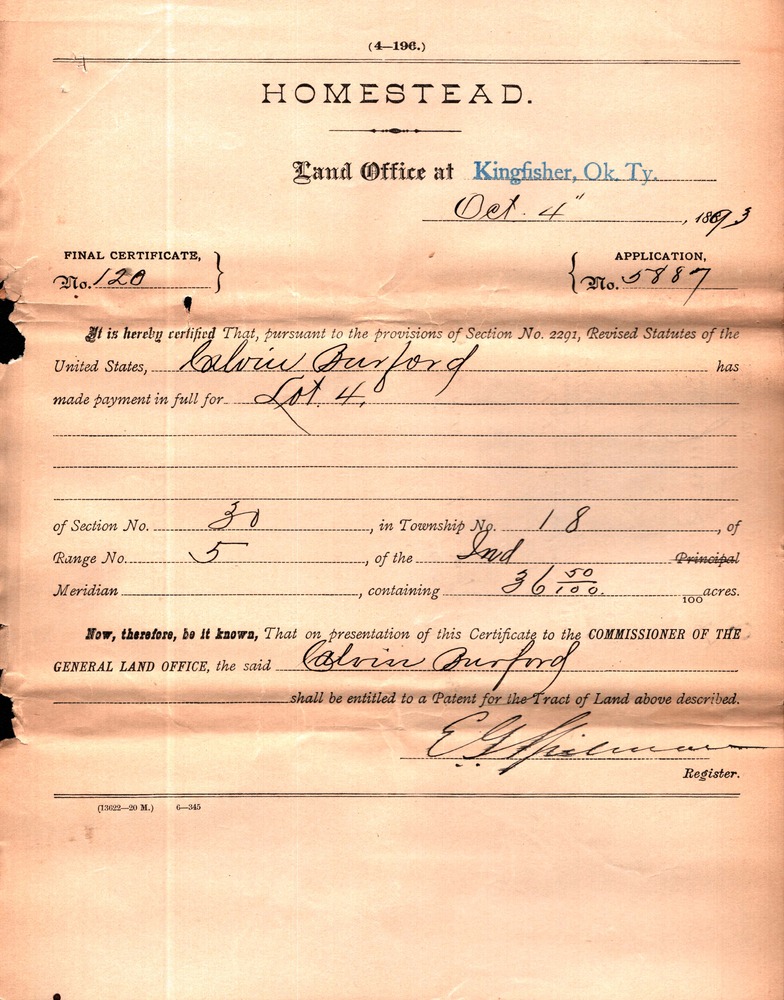 (4—196.)
HOMESTEAD.
Land Office at Kingfisher, Ok. Ty.
Oct. 4", 1893
FINAL CERTIFICATE, } { APPLICATION,
No. 120 No. 5887
It is hereby certified That, pursuant to the provisions of Section No. 2291, Revised Statutes of the
United States, Calvin Burford has
made payment in full for Lot 4,
of Section No. 30, in Township No. 18, of
Range No. 5, of the Ind Principal
Meridian, containing 36 50/100 100 acres.
Now, therefore, be it known, That on presentation of this Certificate to the COMMISSIONER OF THE
GENERAL LAND OFFICE, the said Calvin Burford
shall be entitled to a Patent for the Tract of Land above described.
E G Spilman
Register.
(13622—20 M.) 6—345